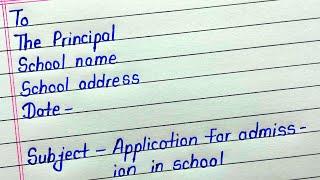 To
The Principal
School name
School address
Date -
Subject - Application for admiss -
ion in school